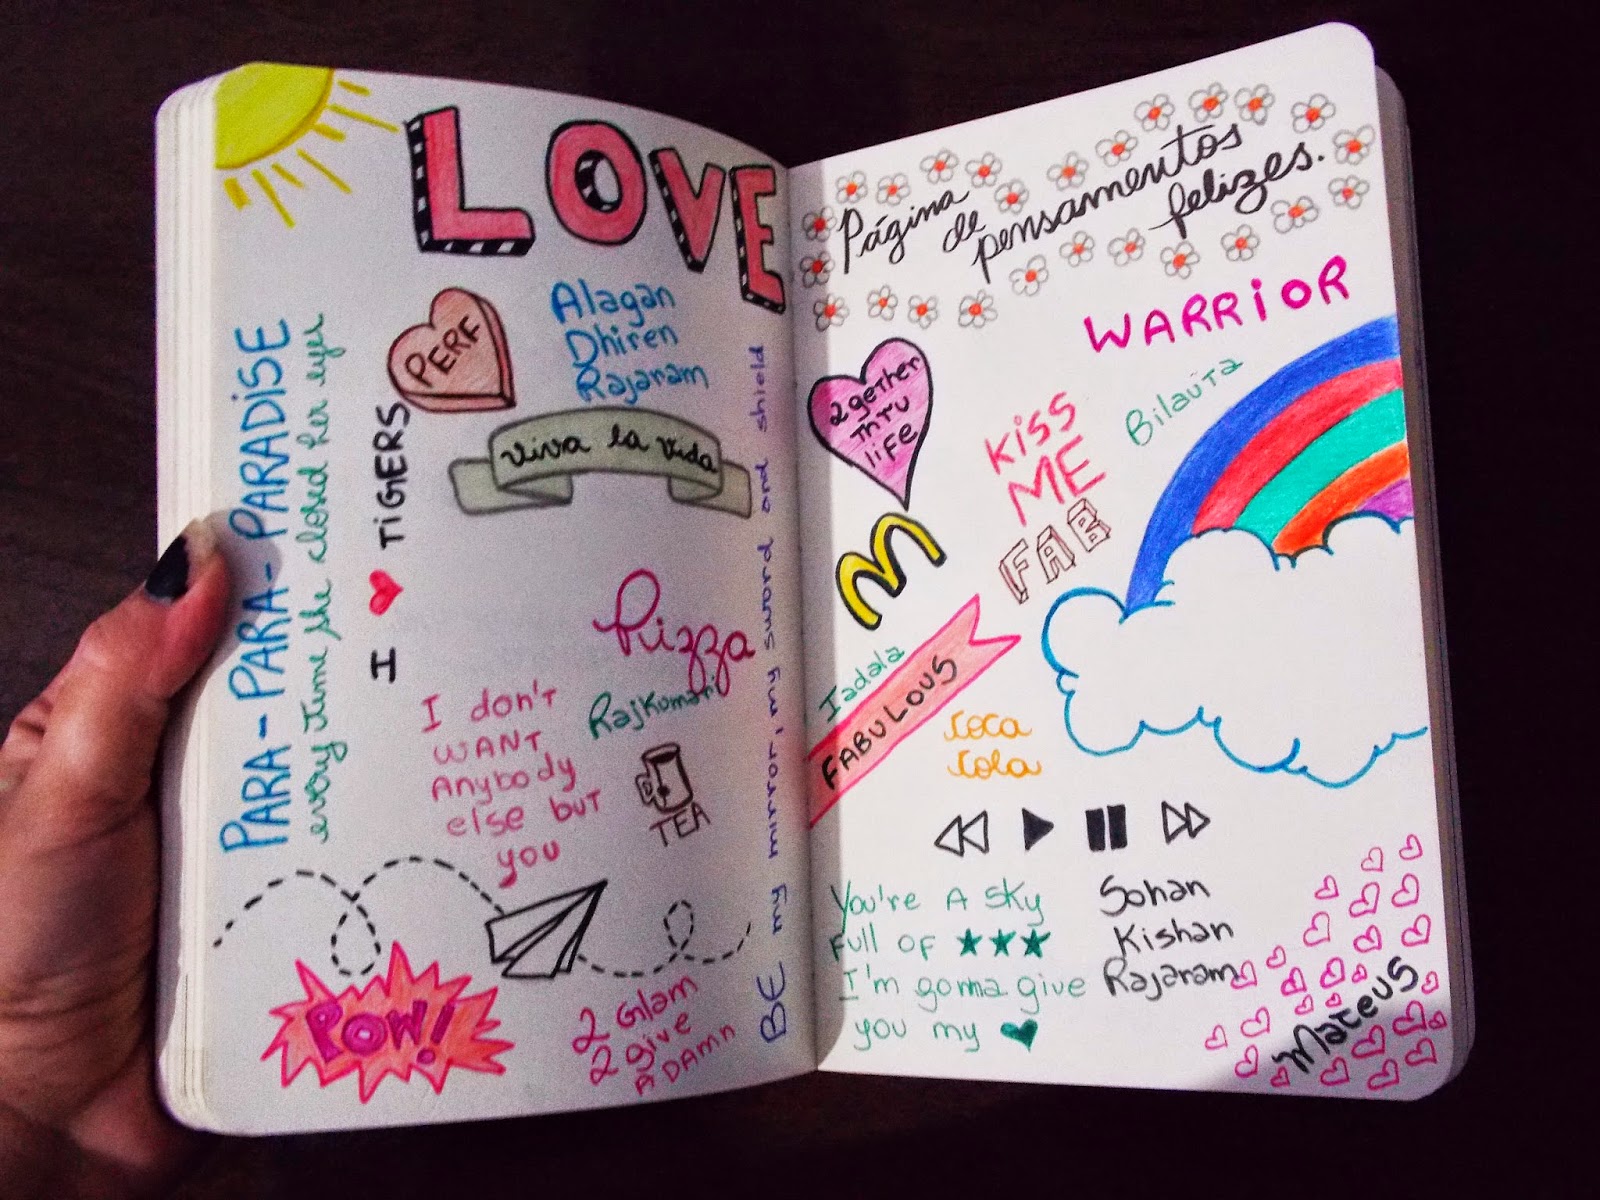 LOVE
PERF
Alagan
Dhiren
Rajaram
Viva la Vida
PARA-PARA-PARADISE
every time she closed her eyes
I ♥ TIGERS
Pizza
I don't
WANT
Anybody
else but
you
RajKumari
TEA
POW!
2 Glam
2 give
A DAMN
BE my mirror, my sword and shield
Página
de
pensamentos
felizes.
WARRIOR
2gether
Thru
life
KISS
ME
Bilauta
FAB
M
Iadala
FABULOUS
Coca
Cola
You're A Sky
Full of ★★★
I'm gonna give
you my ♥
Sohan
Kishan
Rajaram
Mateus